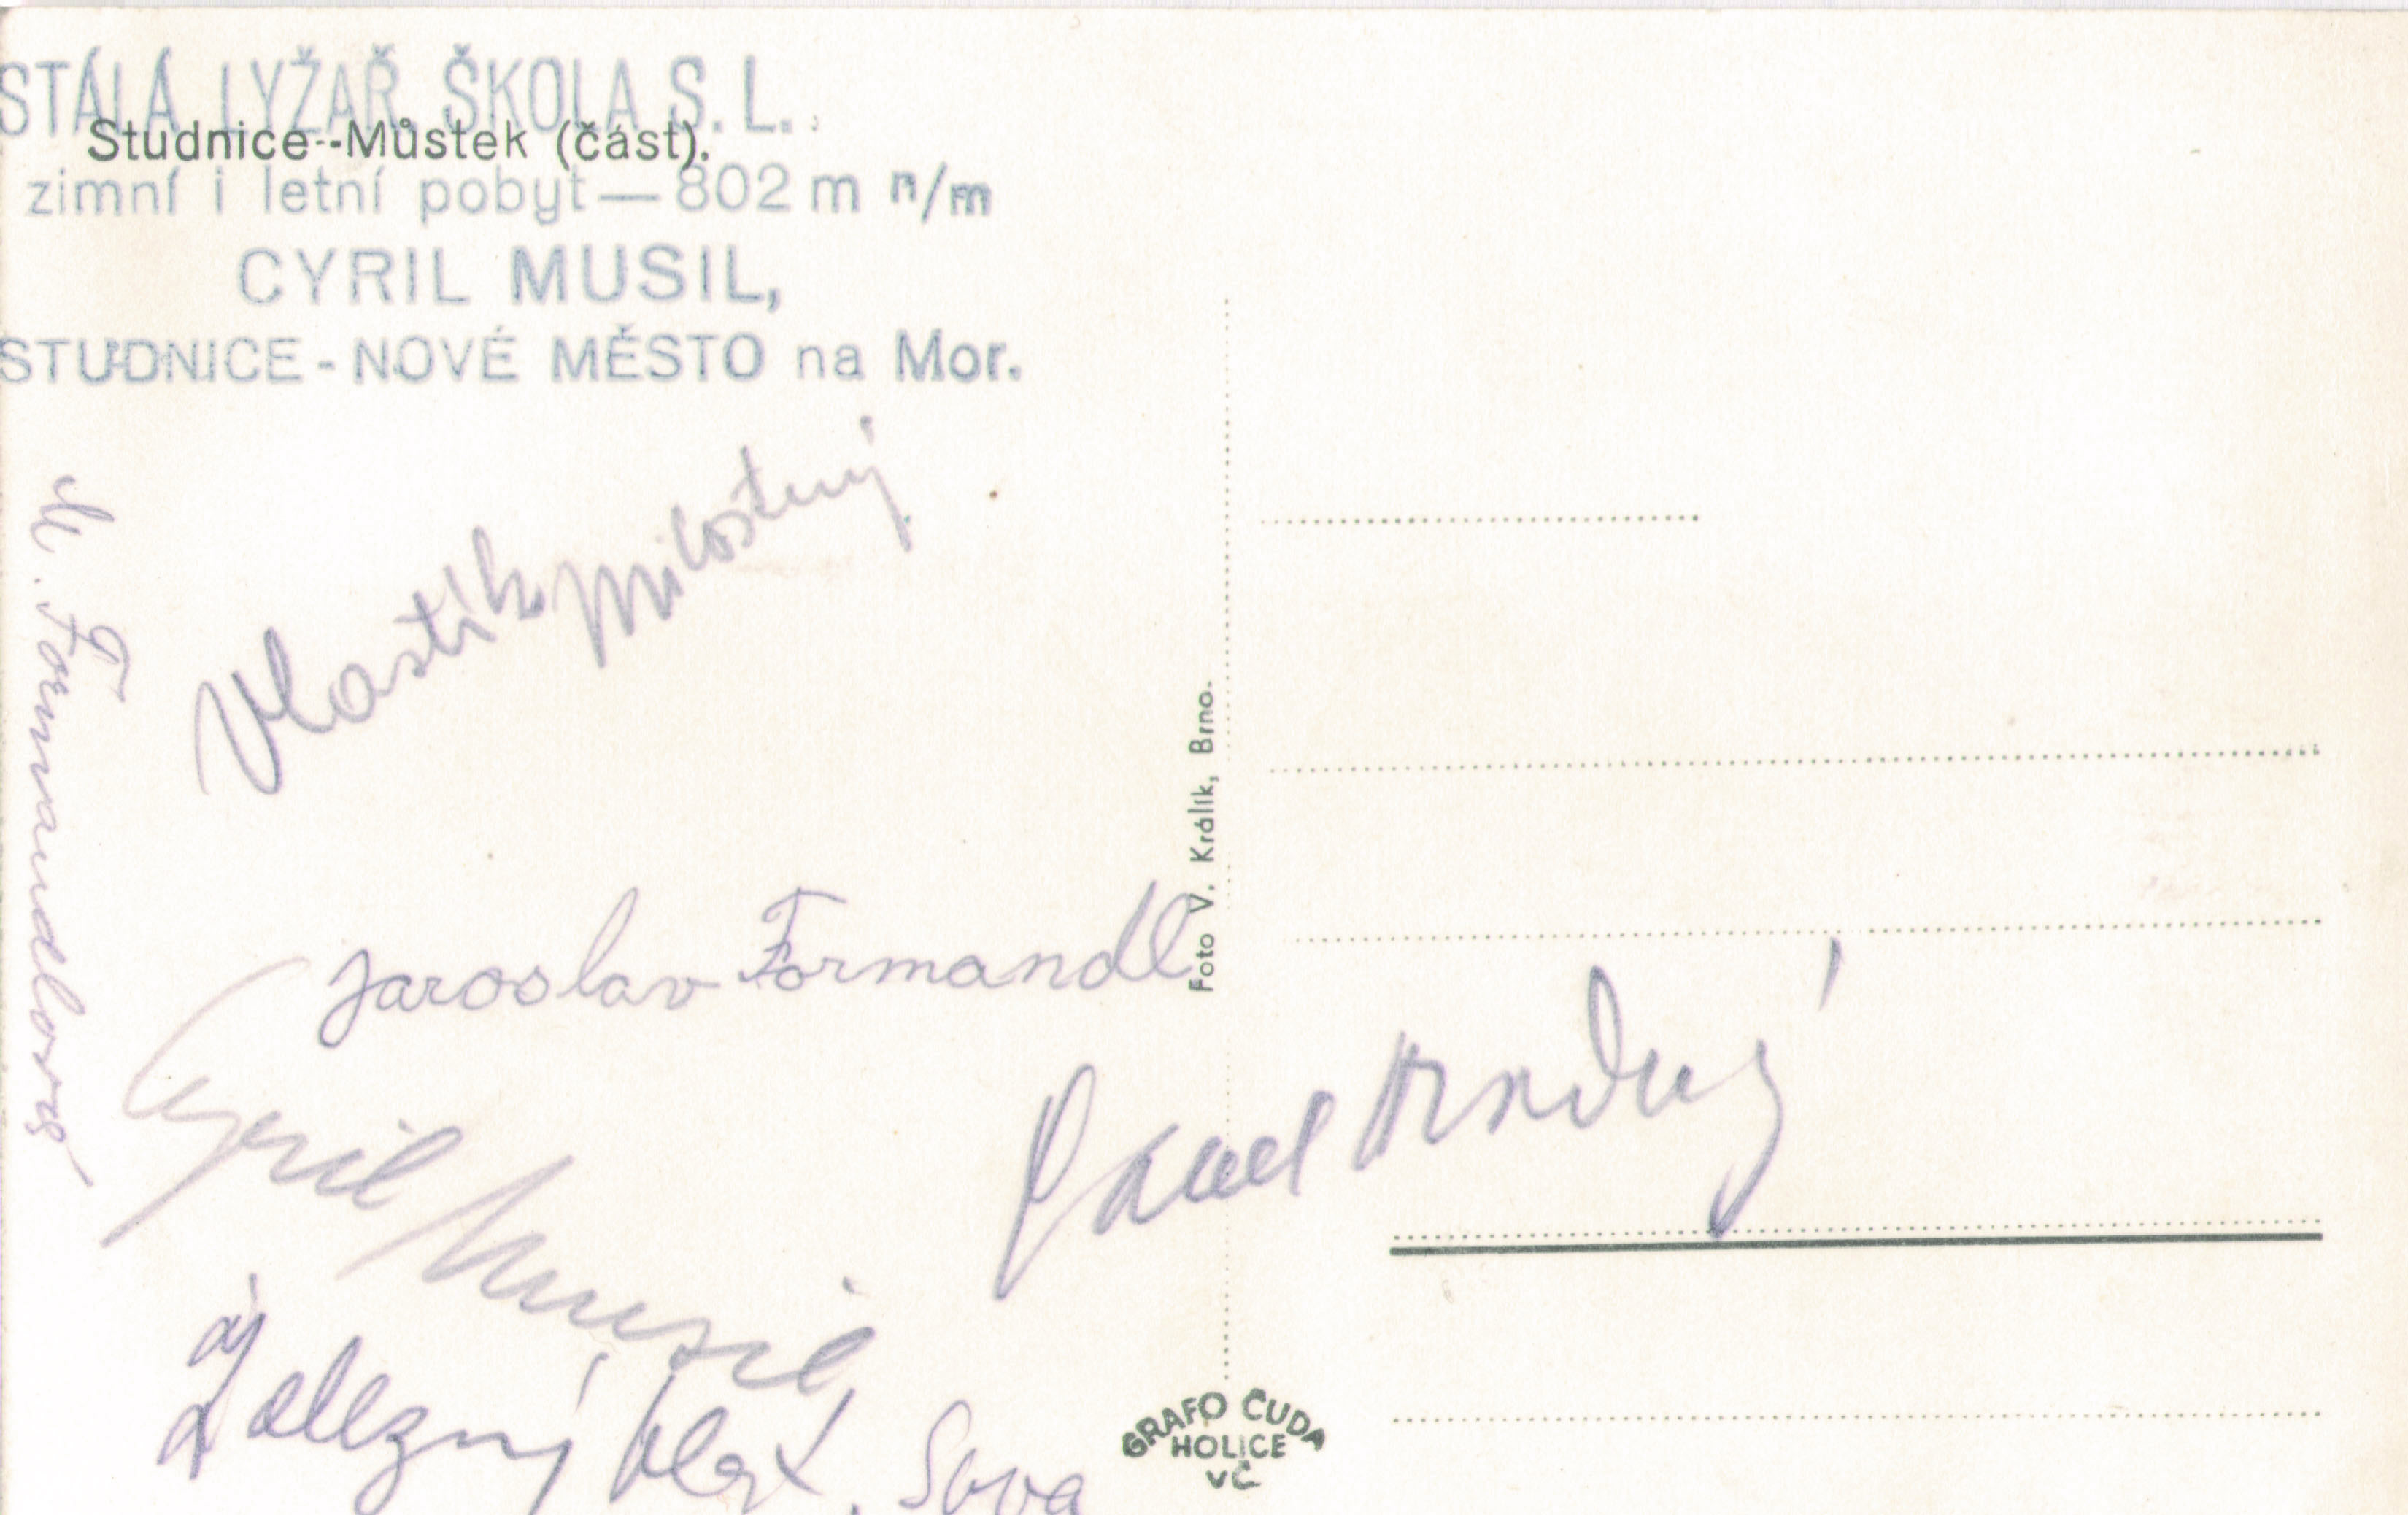 STÁLÁ LYŽAŘ. ŠKOLA S. L.
Studnice--Můstek (část).
zimní i letní pobyt — 802 m n/m
CYRIL MUSIL,
STUDNICE - NOVÉ MĚSTO na Mor.
Vlastík Milostný
M. Formandlova
Jaroslav Formandl
Foto V. Králík, Brno.
Cyril Musil
Pavel
Železný Vlast. Sova
GRAFO ČUDA
HOLICE
VČ